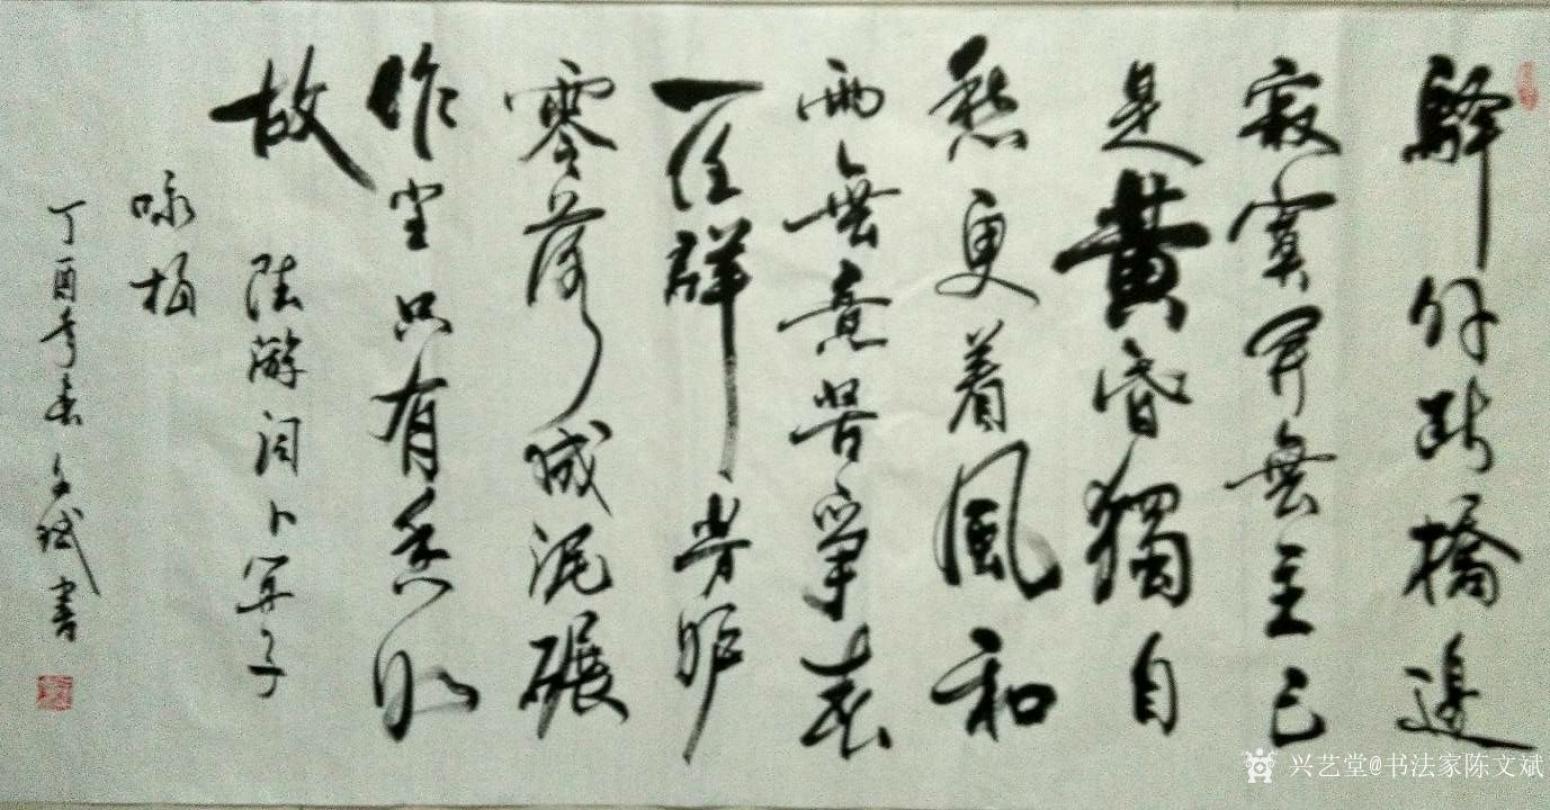 驛外断橋邊
寂寞開無主已
是黄昏獨自
愁更着風和
雨無意苦争春
一任群芳妒
零落成泥碾
作尘只有香如
故 陆游词卜算子
咏梅
丁酉春文斌書
兴艺堂@书法家陈文斌